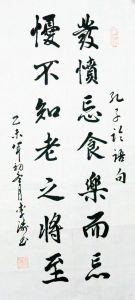 孔子論語句
發憤忘食樂而忘
憂不知老之將至
乙未年初月書